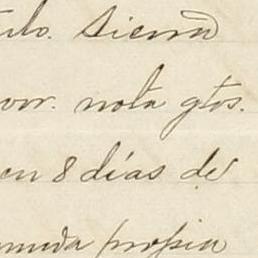 ulo. Sierra
vor. nota gtos.
en 8 días de
muda propia